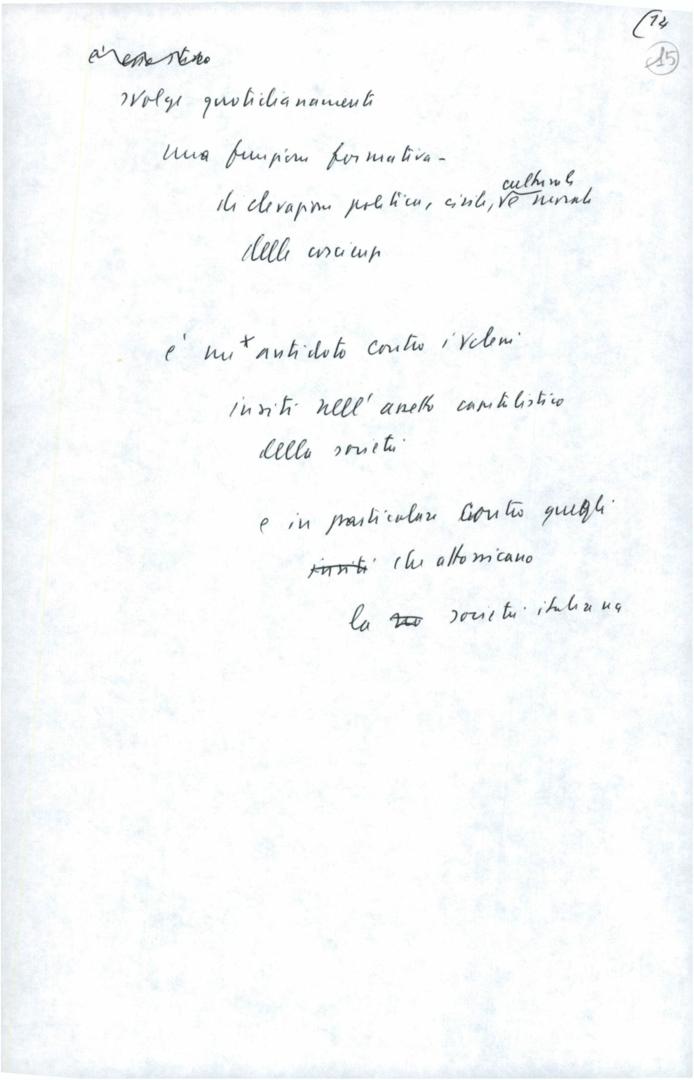 14
15
è esso stesso
svolge quotidianamente
una funzione formativa -
culturale
di elevazione politica, civile, e morale
delle coscienze
e' un antidoto contro i veleni
insiti nell' assetto capitalistico
della società
e in particolare contro quegli
insiti che attossicano
la società italiana